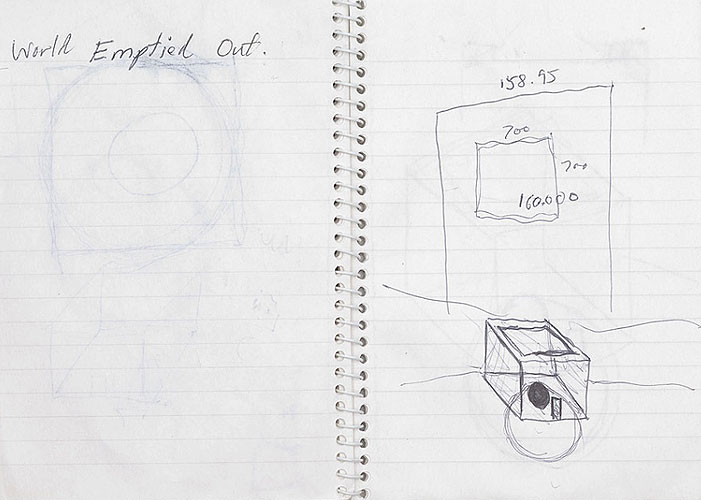 World Emptied Out.
158.95
700
700
160.000